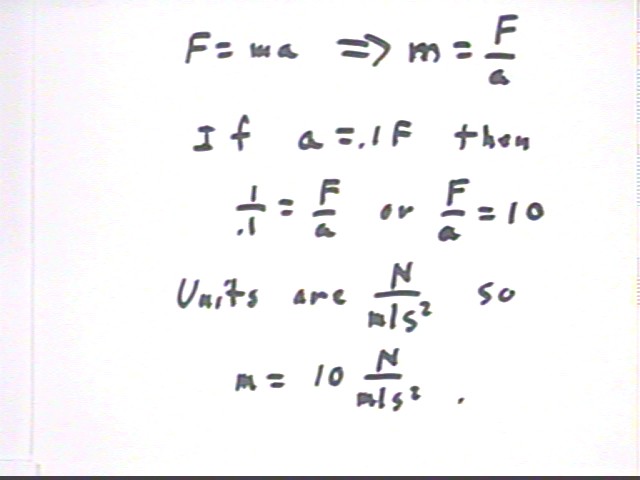 F = ma => m = F/a
If a = .1F then
1/.1 = F/a or F/a = 10
Units are N/m/s² so
m = 10 N/m/s² .